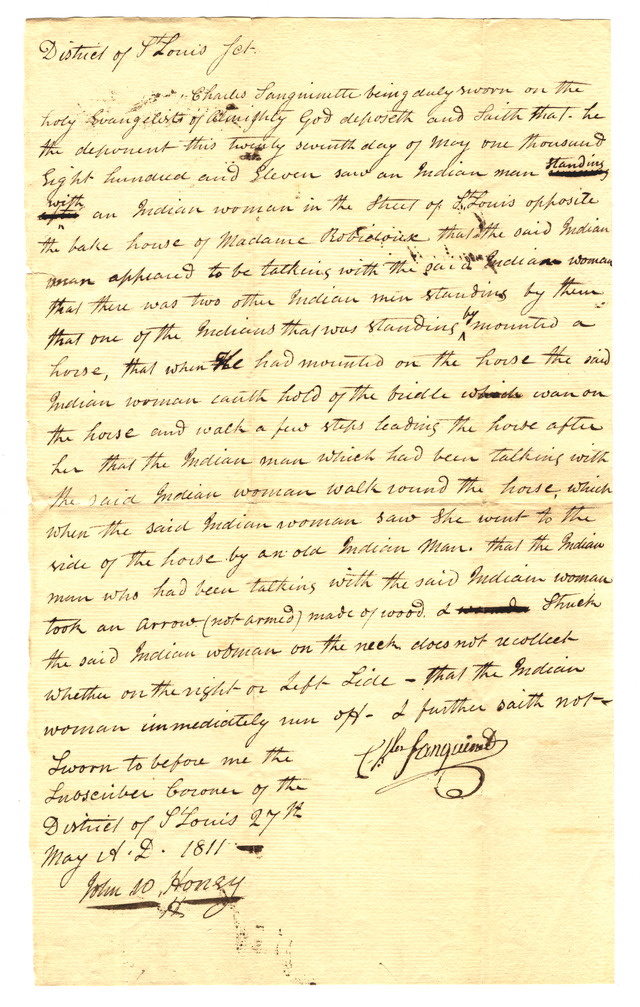 District of St Louis Sct.
Charles Sanguinette being duly sworn on the
holy Evangelists of Almighty God deposeth and Saith that he
the deponent this twenty seventh day of May one thousand
Eight hundred and Eleven saw an Indian man standing
with an Indian woman in the Street of St Louis opposite
the bake house of Madame Robidoux that the said Indian
man appeared to be talking with the said Indian woman
that there was two other Indian men standing by them
that one of the Indians that was standing by mounted a
horse, that when He had mounted on the horse the said
Indian woman cauth hold of the bridle which wan on
the horse and walk a few steps leading the horse after
her that the Indian man which had been talking with
the said Indian woman walk round the horse, which
when the said Indian woman saw She went to the
side of the horse by an old Indian Man. that the Indian
man who had been talking with the said Indian woman
took an arrow (not armed) made of wood. & Struck
the said Indian woman on the neck does not recollect
whether on the right or Left Side – that the Indian
woman immediately run off – & further saith not –
Sworn to before me the
Chles Sanguinet
Subscriber Coroner of the
District of St Louis 27th
May A. D. 1811 –
John W. Honey